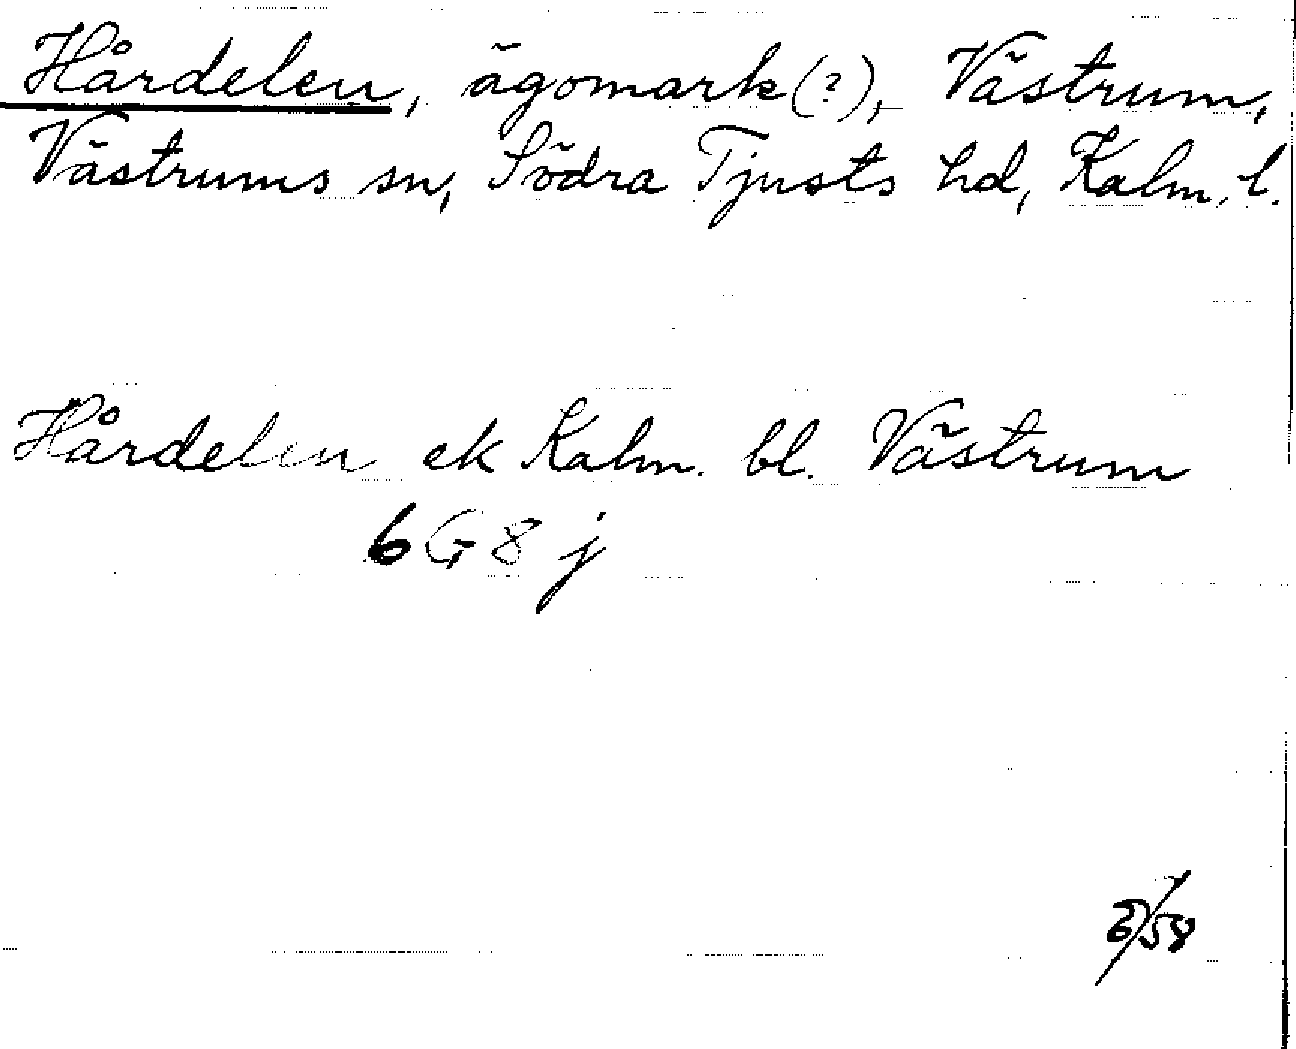 Hårdelen, ägomark (?), Västrum,
Västrums sn, Södra Tjusts hd, Kalm. l.
Hårdelen ek Kalm. bl. Västrum
6 G 8 j